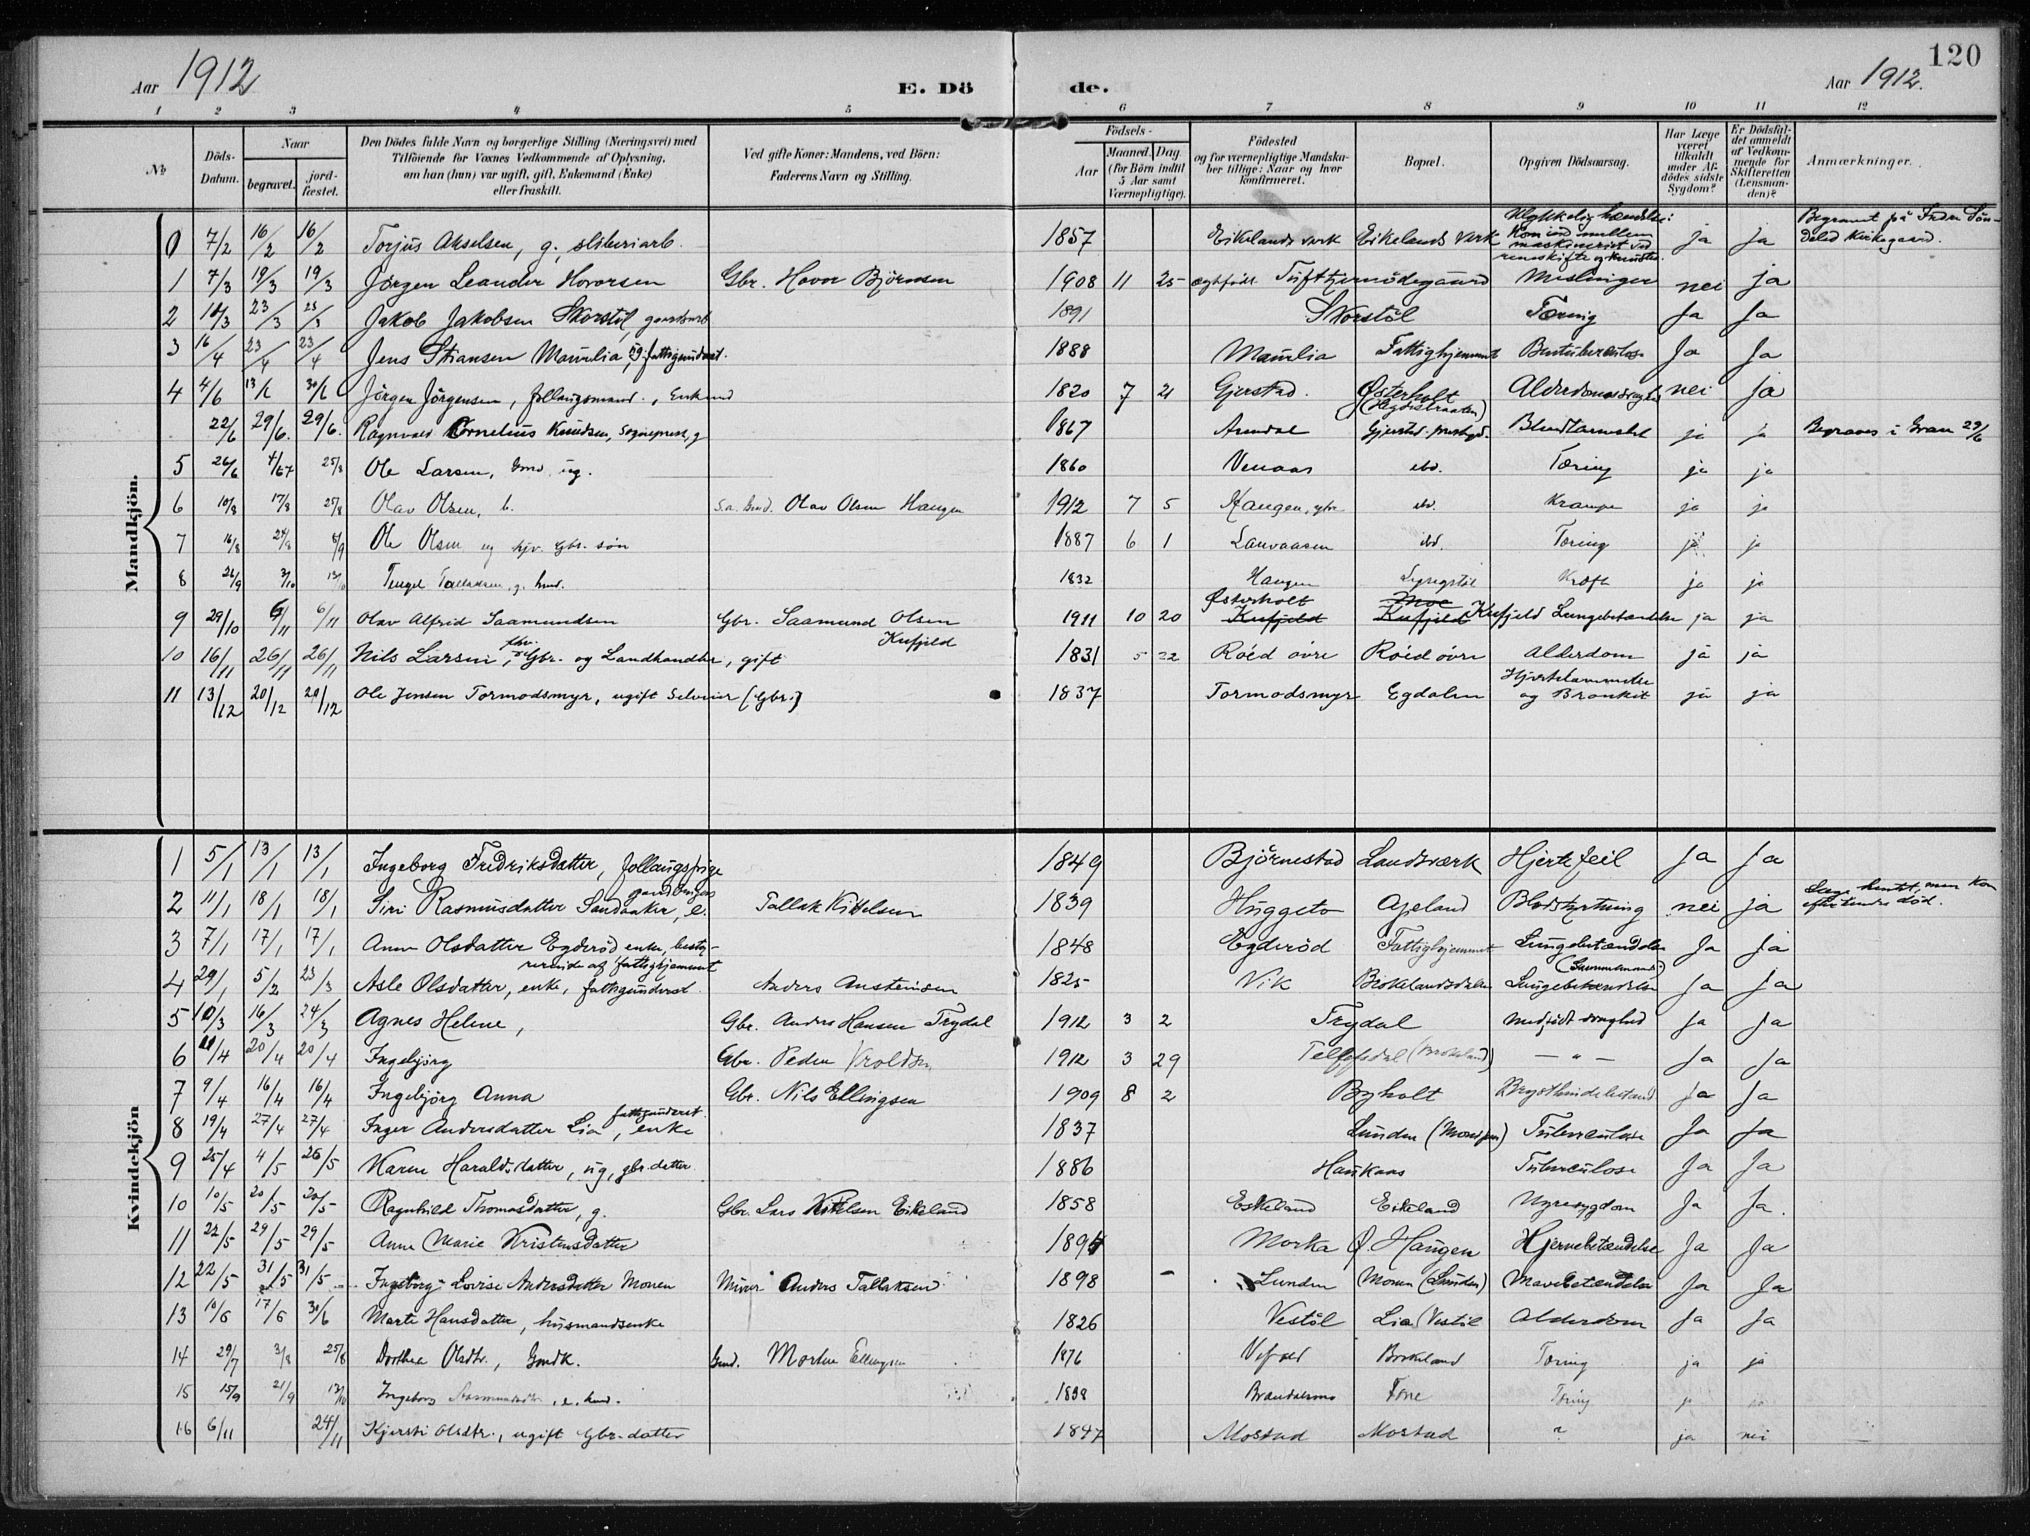 120
Aar 1912
E. Dö
de.
Aar 1912.
1 2 3 4 5 6 7 8 9 10 11 12
№
Döds-Datum.
Naar
begravet.
jord-fæstet.
Den Dödes fulde Navn og borgerlige Stilling (Næringsvei) med
Tilföiende for Voxnes Vedkommende af Oplysning,
om han (hun) var ugift, gift, Enkemand (Enke)
eller fraskilt.
Ved gifte Koner: Mandens, ved Börn:
Faderens Navn og Stilling.
Födsels-
Aar
Maaned. Dag.
(for Börn indtil
5 Aar samt
Værnepligtige).
Födested
og for værnepligtige Mandska-
ber tillige: Naar og hvor
konfirmeret.
Bopæl.
Opgiven Dödsaarsag.
Har Læge
været
tilkaldt
under Af-
dödes sidste
Sygdom?
Er Dödsfal-
det anmeldt
af Vedkom-
mende for
Skifteretten
(Lensman-
den)?
Anmærkninger.
Mandkjön.
0 7/2 16/2 16/2 Torjus Akselsen, g, sliberiarb. 1857 Eikelands verk Eikelands Verk Ulykkelig hændelse: kom ind mellem maskineriet ved ja ja Begravet på Indre Søndeled Kirkegaard.
1 7/3 19/3 19/3 Jørgen Leander Hovorsen Gbr. Hovor Bjørnsen 1908 11 25 ægtefødt Tufttjernødegaard Meslinger nei ja
2 23/3 Jakob Jakobsen Skorstøl, gaardarb 1891 Skorstøl Tæring Ja Ja
3 16/4 23/4 23/4 Jens Stiansen Maurlia, ug. fattigunderst. 1888 Maurlia Fattighjemmet Bentuberculose Ja Ja
4 4/6 13/6 30/6 Jørgen Jørgensen, follaugsmand, Enkemd 1820 7 21 Gjerstad. Østerholt Alderdomssvaghed nei ja
22/6 29/6. 29/6. Ragnvald Cornelius Knudsen, Sogneprest, g 1867 Arendal Gjerstad prestgd. Blindtarmsbet ja ja Begraves i Gran 29/6
5 26/6 4/7 25/8 Ole Larsen, Gmd ug. 1860 Venaas ibd. Tæring ja ja
6 10/8 17/8 25/8 Olav Olsen, b. S.a. Gmd. Olav Olsen Haugen 1912 7 5 Haugen, gbr. ibd. Krampe ja ja
7 16/8 24/8 8/9 Ole Olsen ug hjv. Gbr. søn 1887 6 1 Lauvaasen ibd. Tæring ja ja
8 26/9 3/10 13/10 Tengel Tallaksen, g. hmd. 1832 Haugen Kræft ja ja
9 29/10 6/11 6/11 Olav Alfred Saamundsen Gbr. Saamund Olsen Kufjeld 1911 10 20 Østerholt Kufjeld Moe Kufjeld Kufjeld Lungebetændelse ja ja
10 16/11 26/11 26/11 Nils Larsen, fhv. Gbr. og Landhandler, gift 1831 5 22 Røed øvre Røed øvre Alderdom ja ja
11 13/12 20/12 20/12 Ole Jensen Tormodsmyr, ugift Selveier (Gbr.) 1837 Tormodsmyr Egdalen Hjertelammelse og Bronkit ja ja
Kvindekjön
1 5/1 13/1 13/1 Ingeborg Fredriksdatter, follaugspige 1849 Bjørnestad Landsværk Hjertefeil Ja Ja
2 11/1 18/1 18/1 Siri Rasmusdatter Sandaaker, e. Tallak Kittelsen 1839 Huggeto Apeland Blodstyrtning nei ja Læge hentet, men kom efter endt død.
3 7/1 17/1 17/1 Anne Olsdatter Egderød enke, besty-
rerinde af fattighjemmet 1848 Egderød Fattighjemmet Lungebetændelse Ja Ja
4 29/1 5/2 23/3 Asle Olsdatter, enke, fattigunderst. Anders Austensen 1825 Vik Brokelandsdalen Lungebetændelse Ja Ja
5 10/3 16/3 24/3 Agnes Helene, Gbr. Anders Hansen Trydal 1912 3 2 Trydal Medfødt svaghed Ja Ja
6 11/4 20/4 20/4 Ingebjørg Gbr. Peder Vroldsen 1912 3 29 (Brokeland) — " — Ja Ja
7 9/4 16/4 16/4 Ingebjørg Anna Gbr. Nils Ellingsen 1909 8 2 Byholt Ja Ja
8 19/4 27/4 27/4 Inger Andersdatter Lia, fattigunderst. enke 1837 Lunden Tuberculose Ja Ja
9 25/4 4/5 26/5 Karen Haraldsdatter, ug, gbr. datter 1886 Haukaas Tuberculose Ja Ja
10 10/5 20/5 20/5 Ragnhild Thomasdatter, g. Gbr. Lars Kittelsen Eikeland 1858 Eskeland Eikeland Nyresygdom Ja Ja.
11 22/5 29/5 29/5 Anne Marie Kristensdatter 1895 Morka Ø. Haugen Hjernebetændelse Ja Ja
12 22/5 31/5 31/5 Ingeborg Lovise Andersdatter Monen Murer Anders Tallaksen 1898 – Lunden Monen (Lunden) Mavebetændelse Ja Ja
13 10/6 17/6 30/6 Marte Hansdatter, husmandsenke 1826 Vestøl Lia (Vestøl Alderdom Ja Ja
14 29/7 3/8 25/8 Dorthea Olsdtr., Gmdk. Gmd. Morten Ellingsen 1876 Brokeland Tæring ja ja
15 15/9 21/9 13/10 Ingeborg Saamundsdtr., e. hmd. 1838 Fone Tæring ja ja
16 6/11 24/11 Kjersti Olsdtr., ugift Gbr.datter 1847 Mostad Mostad " ja nei